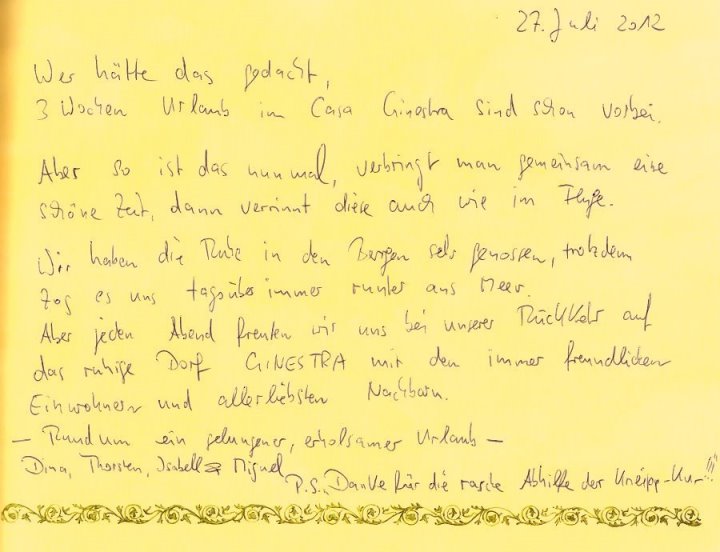 27. Juli 2012
Wer hätte das gedacht,
3 Wochen Urlaub im Casa Ginestra sind schon vorbei.
Aber so ist das nun mal, verbringt man gemeinsam eine
schöne Zeit, dann verrinnt diese auch wie im Fluge.
Wir haben die Ruhe in den Bergen sehr genossen, trotzdem
zog es uns tagsüber immer runter ans Meer.
Aber jeden Abend freuten wir uns bei unserer Rückkehr auf
das ruhige Dorf GINESTRA mit den immer freundlichen
Einwohnern und allerliebsten Nachbarn.
– Rundum ein gelungener, erholsamer Urlaub –
Dina, Thorsten, Isabell & Miguel
P.S. Danke für die rasche Abhilfe der Kneipp-Kur-!!!